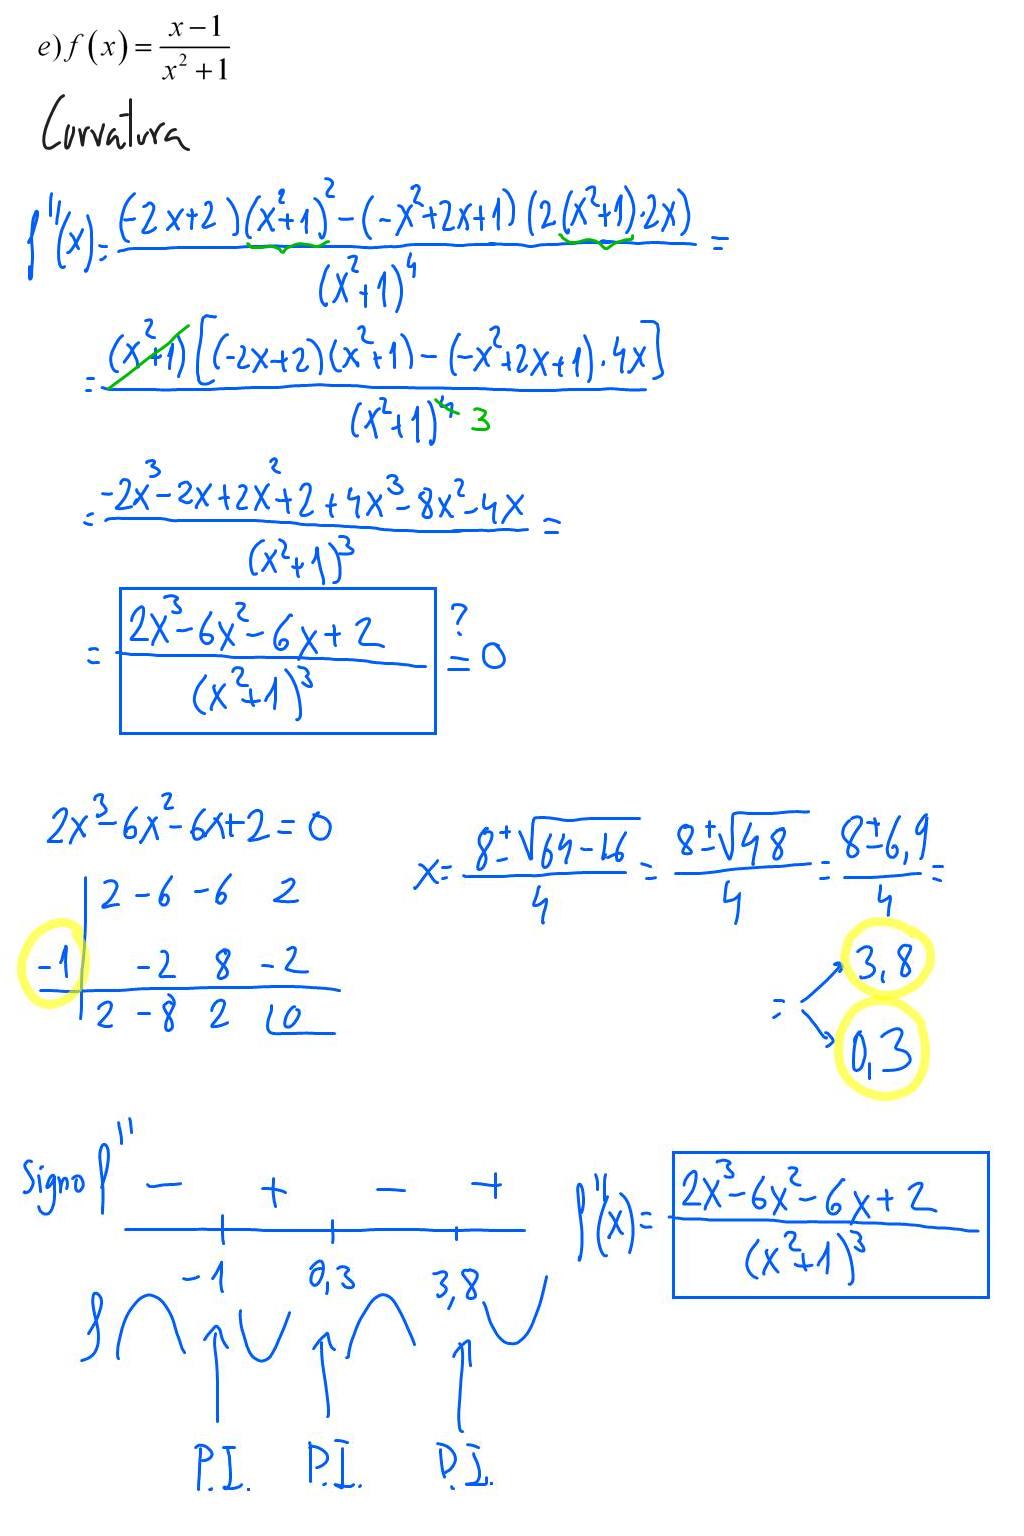 e) f(x) = (x-1)/(x²+1)
Curvatura
f''(x) = ((-2x+2)(x²+1)² - (-x²+2x+1)(2(x²+1)·2x))/(x²+1)⁴ =
= ((x²+1)[(-2x+2)(x²+1) - (-x²+2x+1)·4x])/(x²+1)⁴ 3
= (-2x³-2x+2x²+2+4x³-8x²-4x)/(x²+1)³ =
= (2x³-6x²-6x+2)/(x²+1)³ =? 0
2x³-6x²-6x+2=0
2 -6 -6 2
-1 -2 8 -2
2 -8 2 0
x = (8±√(64-16))/4 = (8±√48)/4 = (8±6,9)/4 =
= 3,8
0,3
Signo f'' - + - +
-1 0,3 3,8
f
P.I. P.I. P.I.
f''(x) = (2x³-6x²-6x+2)/(x²+1)³